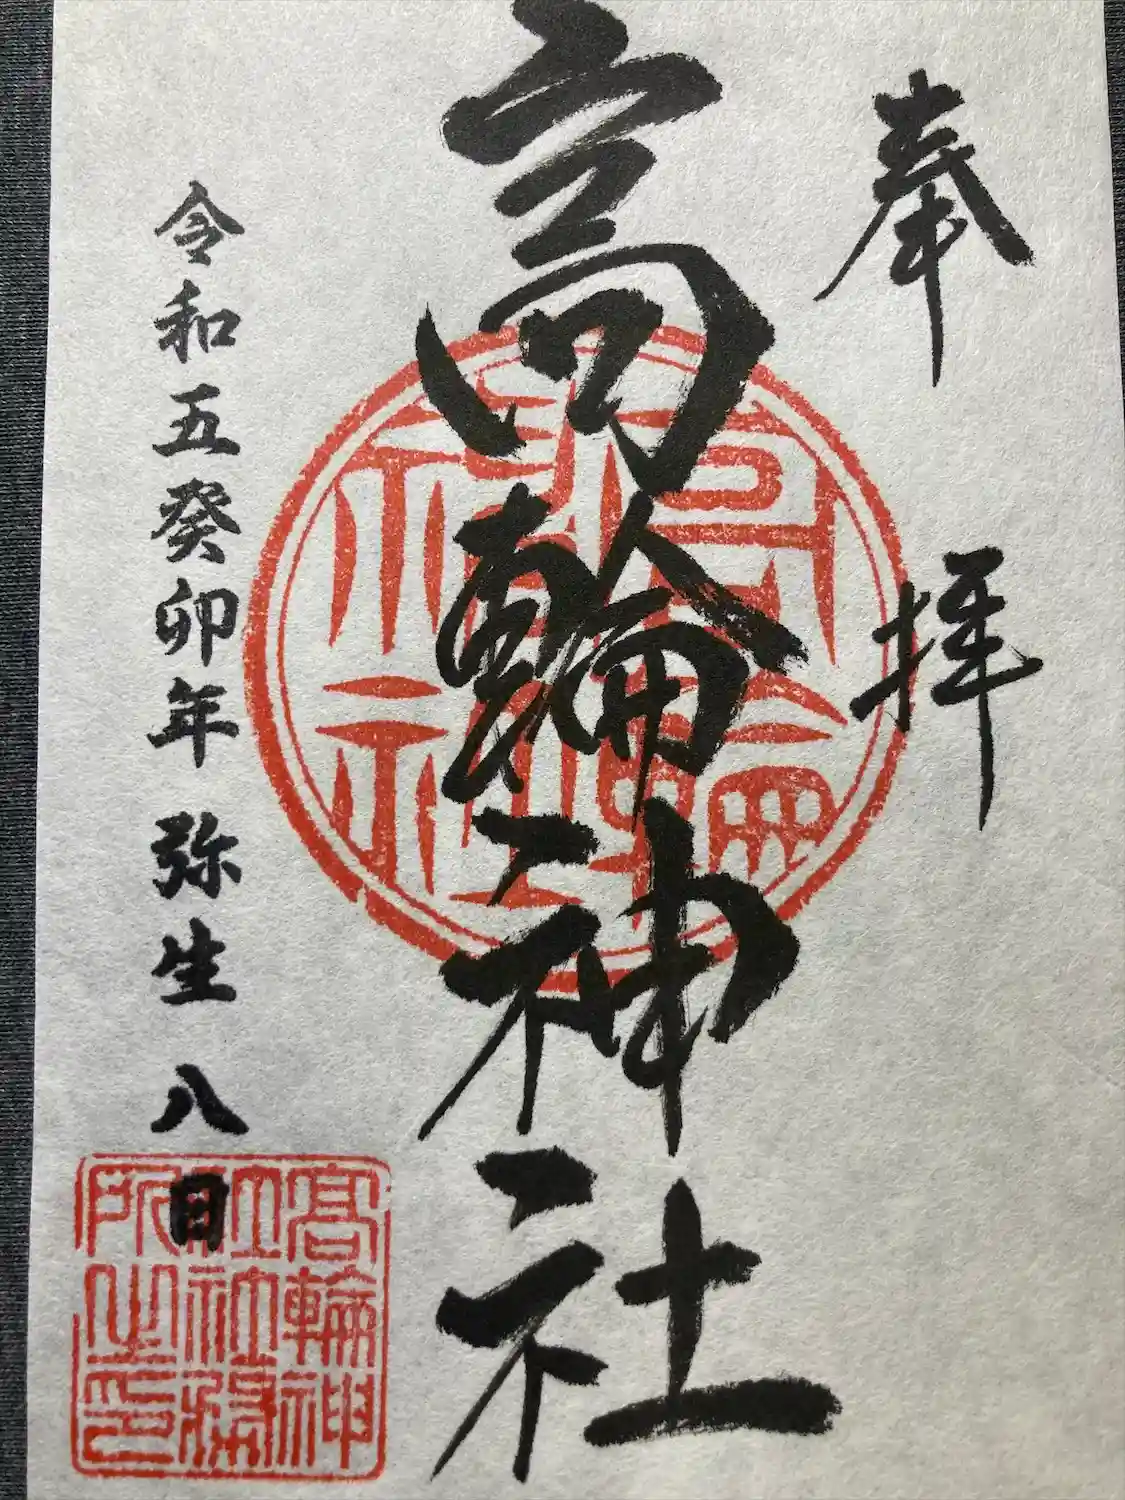 奉拝
高輪神社
令和五癸卯年 弥生 八日
高輪神社
高輪神
社社務
所之印